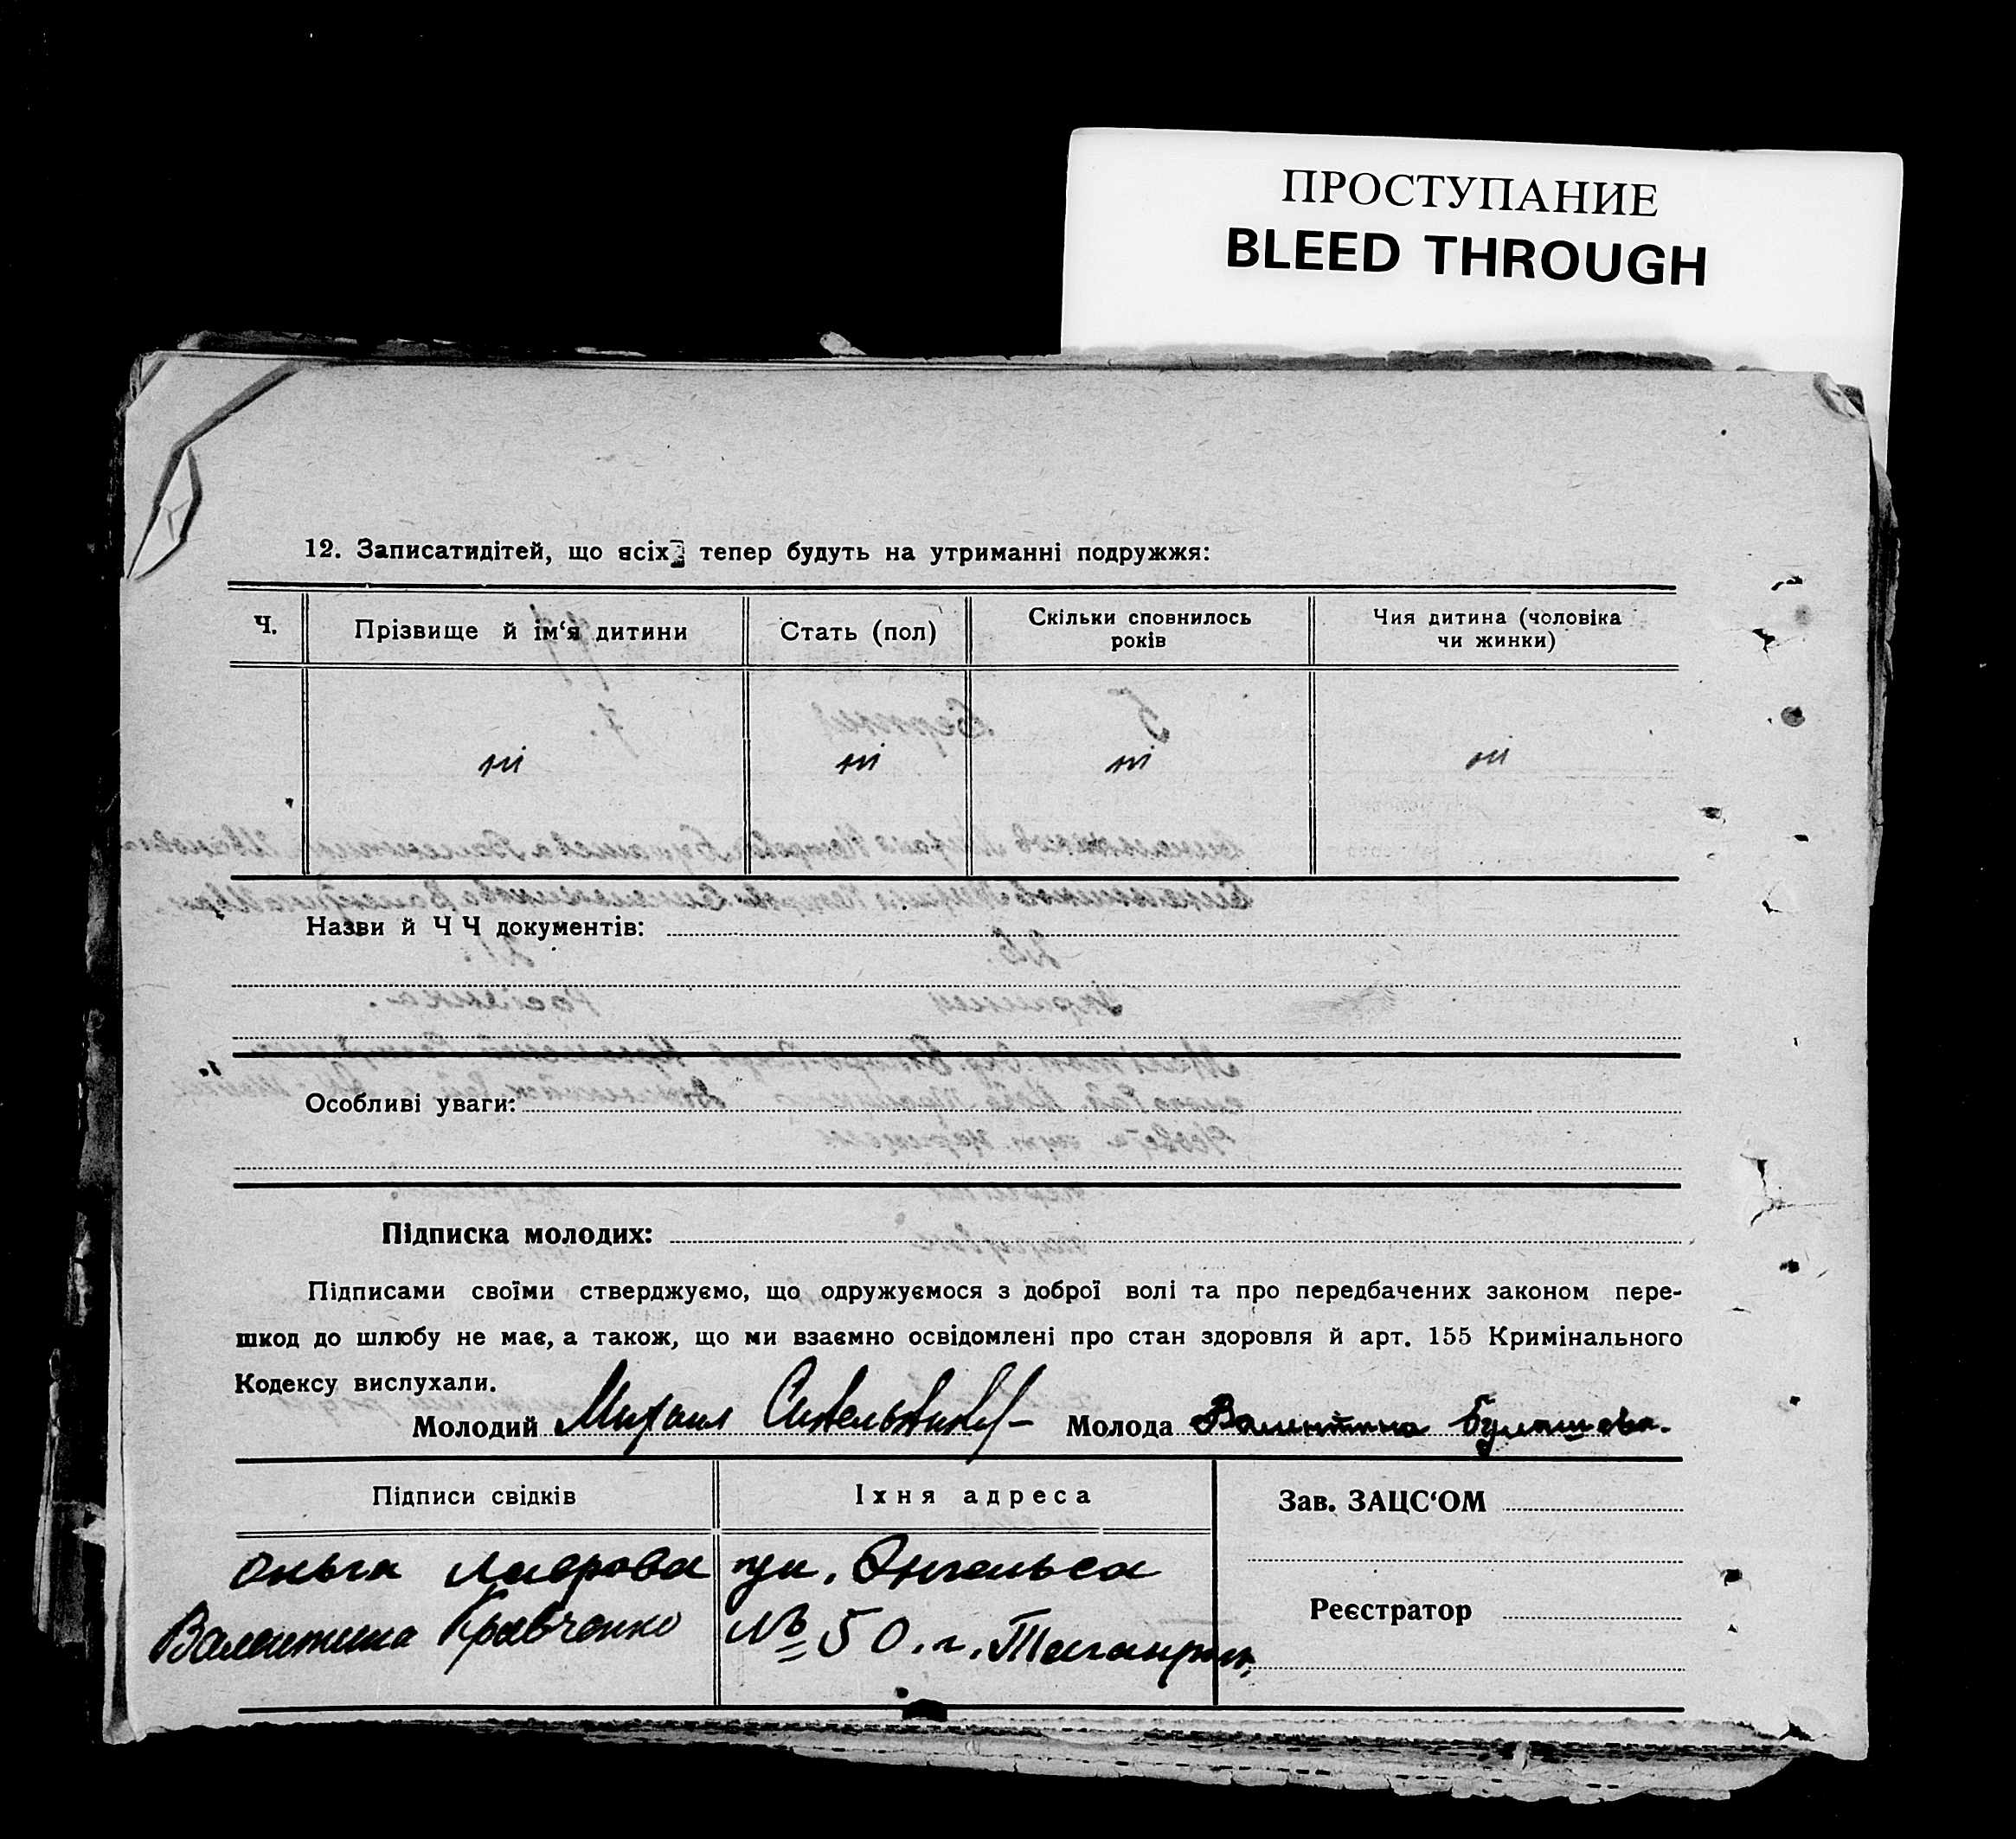 ПРОСТУПАНИЕ
BLEED THROUGH
12. Записатидітей, що всіх тепер будуть на утриманні подружжя:
Ч. Прізвище й ім‘я дитини Стать (пол) Скільки сповнилось років Чия дитина (чоловіка чи жинки)
ні ні ні ні
Назви й Ч Ч документів:
Особливі уваги:
Підписка молодих:
Підписами своїми стверджуємо, що одружуємося з доброї волі та про передбачених законом пере-
шкод до шлюбу не має, а також, що ми взаємно освідомлені про стан здоровля й арт. 155 Кримінального
Кодексу вислухали.
Молодий Михаил Синельников Молода Валентина Булашева.
Підписи свідків Їхня адреса Зав. ЗАЦС‘ОМ
Ольга Лаврова ул. Энгельса
Реєстратор
Валентина Кравченко № 50. г. Таганрог.